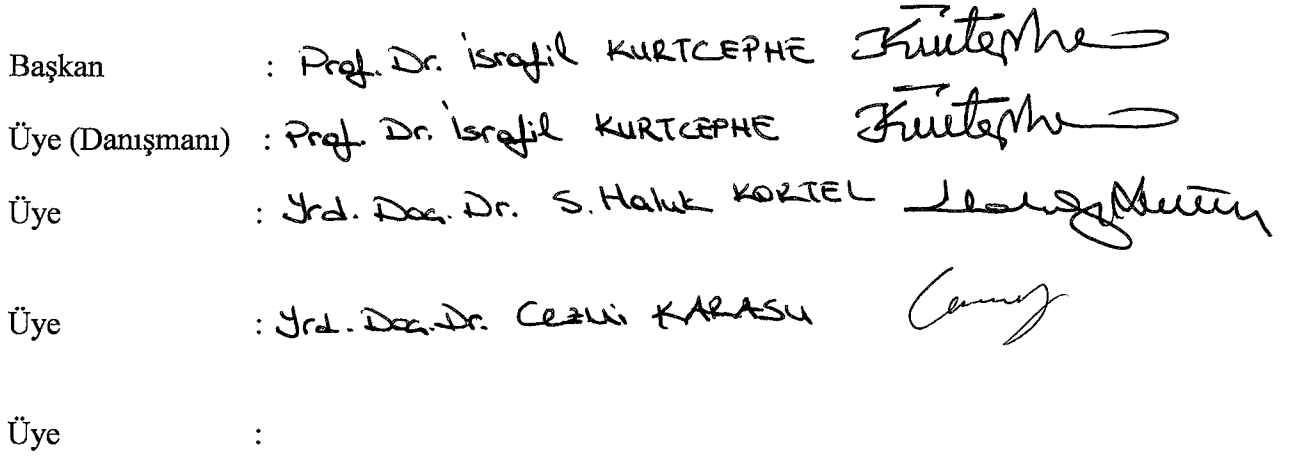 Başkan : Prof. Dr. İsrafil KURTCEPHE
Üye (Danışmanı) : Prof. Dr. İsrafil KURTCEPHE
Üye : Yrd. Doç. Dr. S. Haluk KORTEL
Üye : Yrd. Doç. Dr. Cezmi KARASU
Üye :